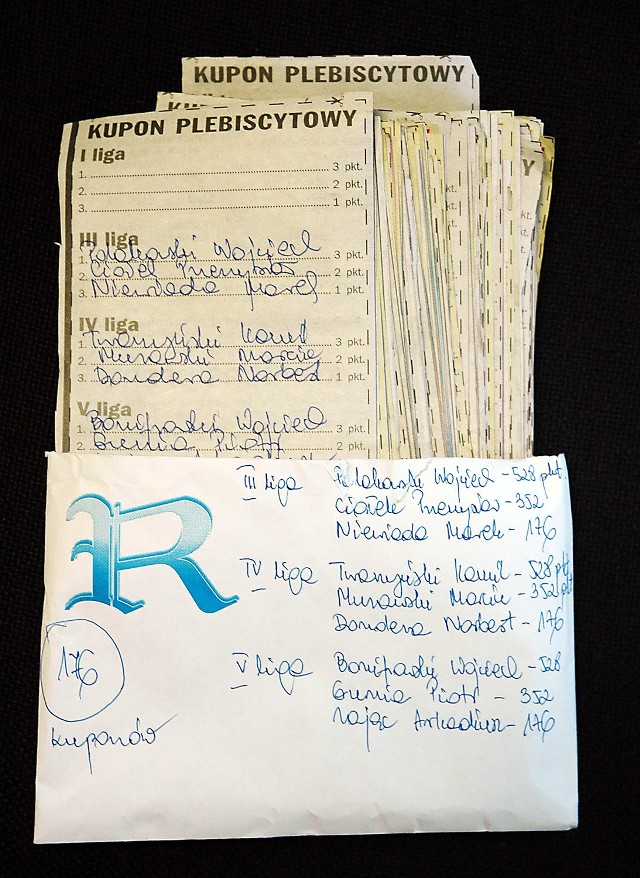 KUPON PLEBISCYTOWY
KUPON PLEBISCYTOWY
I liga
1. 3 pkt.
2. 2 pkt.
3. 1 pkt.
III liga
1. Wojciech 3 pkt.
2. Ciołek Przemysław 2 pkt.
3. Niewiada Marek 1 pkt.
IV liga
1. Kamil 3 pkt.
2. Murawski Marcin 2 pkt.
3. Dondera Norbert 1 pkt.
V liga
1. Wojciech 3 pkt.
2. Piotr 2 pkt.
R
III liga Wojciech - 528 pkt.
Ciołek Przemysław - 352
Niewiada Marek - 176
IV liga Kamil - 528 pkt
Murawski Marcin - 352 pkt
Dondera Norbert - 176
V liga Wojciech - 528
Piotr - 352
Zając Arkadiusz - 176
176
kuponów